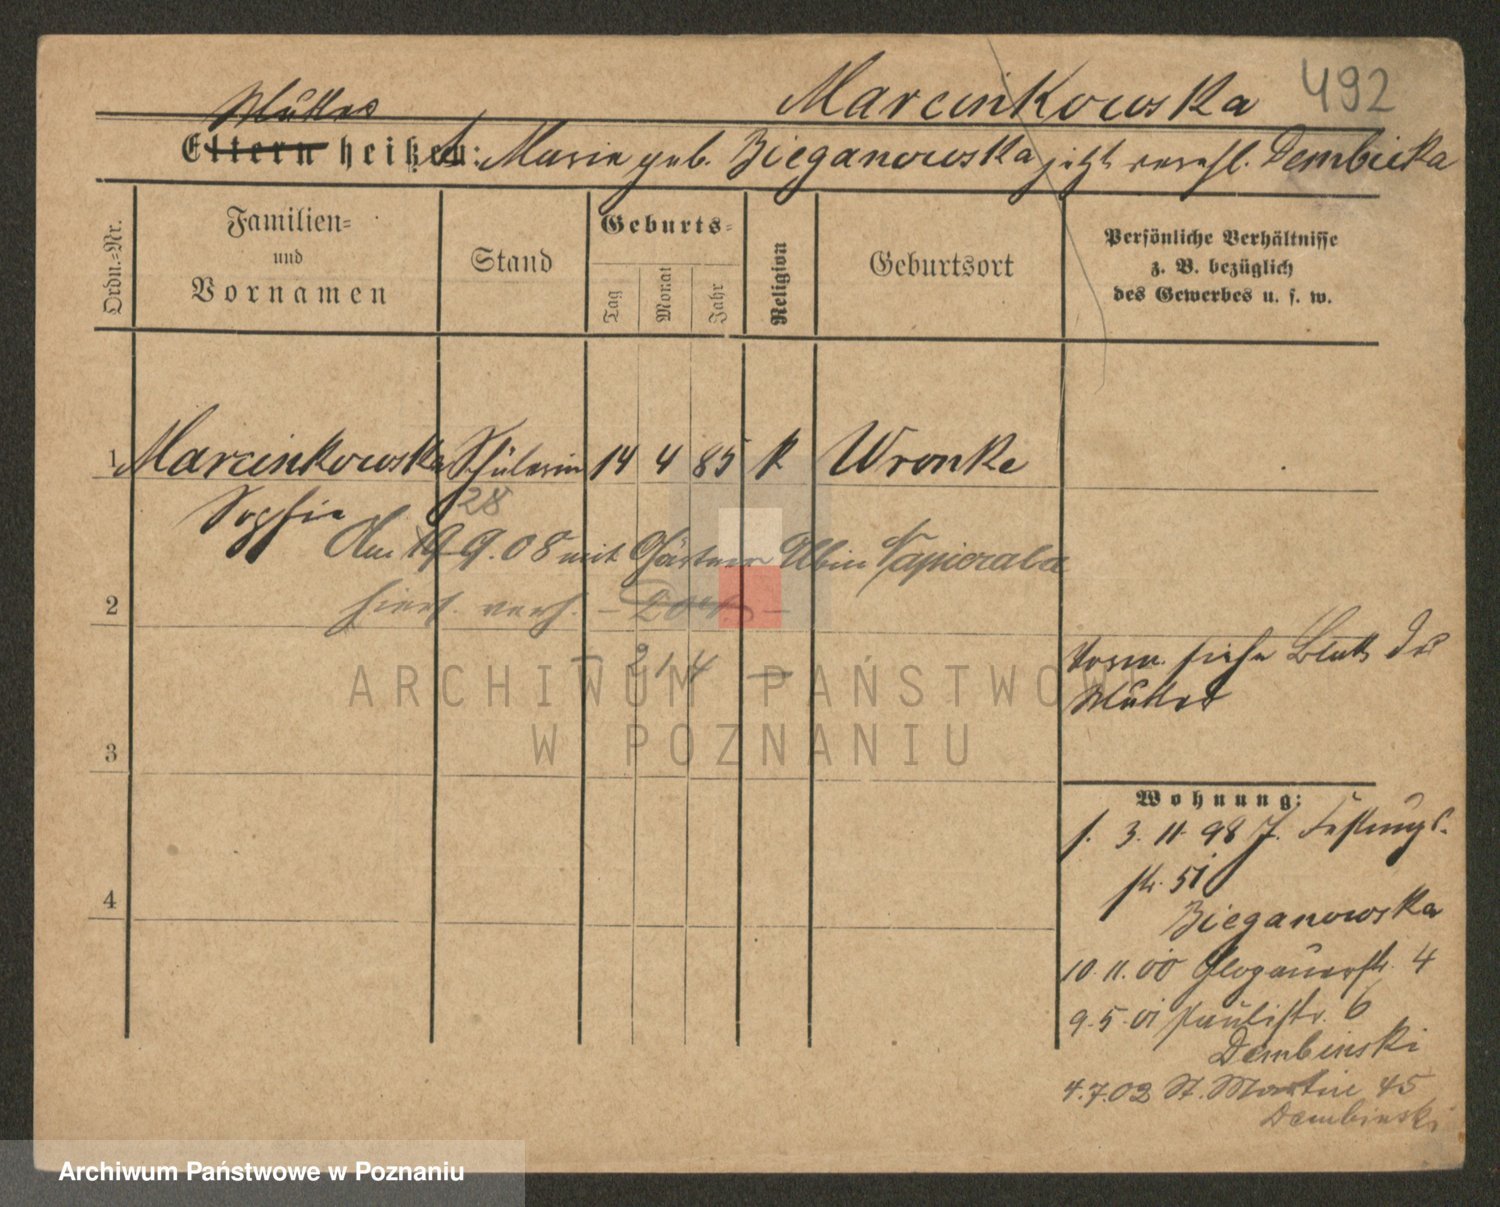 Marcinkowska 492
Mutter
Eltern heißen: Maria geb. Bieganowska jetzt verehl. Dembicka
Ordn.-Nr.
Familien-
und
Vornamen
Stand
Geburts-
Tag
Monat
Jahr
Religion
Geburtsort
Persönliche Verhältnisse
z. B. bezüglich
des Gewerbes u. s. w.
1 Marcinkowska Schülerin 14 4 85 k Wronke
Sophie
28
Am 19 9.08 mit Gärtner Albin Napierala
2 hiers. verh.
214
Vorm. siehe Blatt der
Mutter
3
Wohnung:
f. 3. 11. 98 J. Festungs-
str. 51
Bieganowska
4
10. 11. 00 Glogauerstr. 4
9. 5. 01 Paulistr. 6
Dembinski
4.7.02 St. Martin 45
Dembinski
ARCHIWUM PAŃSTWOWE
W POZNANIU
Archiwum Państwowe w Poznaniu